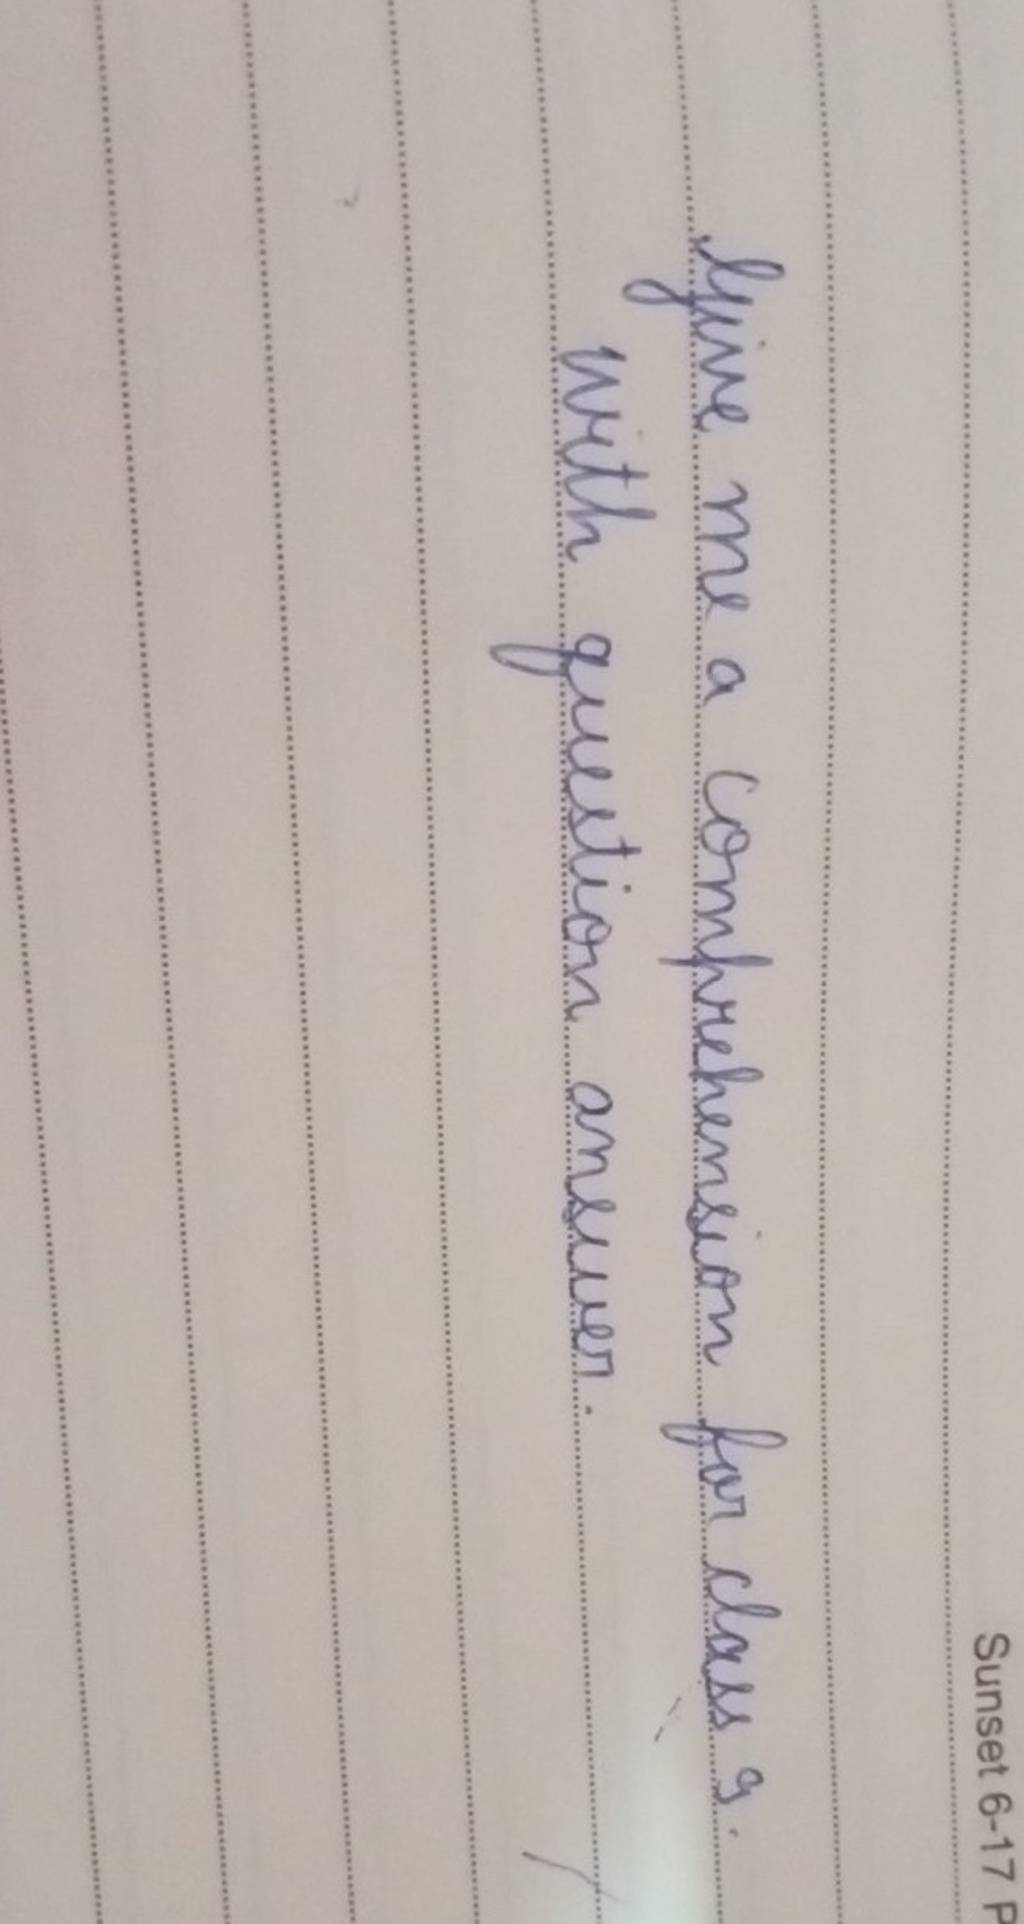 Sunset 6-17 P
Give me a comprehension for class 9.
with question answer.